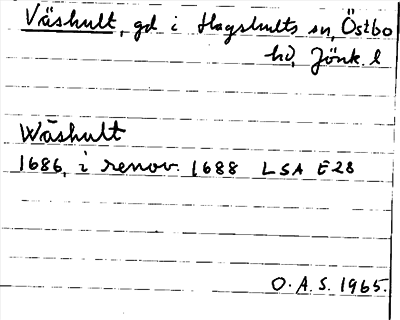 Väshult, gd i Hagshults sn, Östbo
hd, Jönk. l
Wäshult
1686, i renov. 1688 LSA E28
O.A.S. 1965.